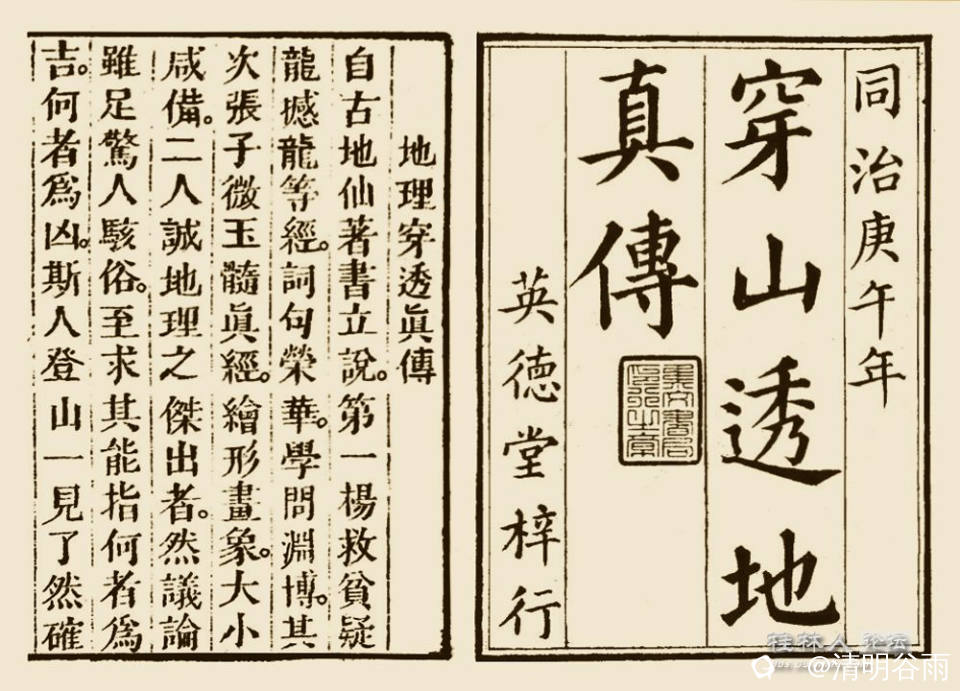 同治庚午年
穿山透地
真傳
英德堂梓行
地理穿透眞傳
自古地仙著書立說。第一楊救貧疑
龍撼龍等經。詞句榮華。學問淵博。其
次張子微玉髓眞經。繪形畫象。大小
咸備。二人誠地理之傑出者。然議論
雖足驚人駭俗。至求其能指何者爲
吉。何者爲凶。斯人登山一見了然確
桂林人论坛
@清明谷雨